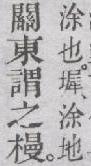 涂也。墀、涂地
關東謂之槾。